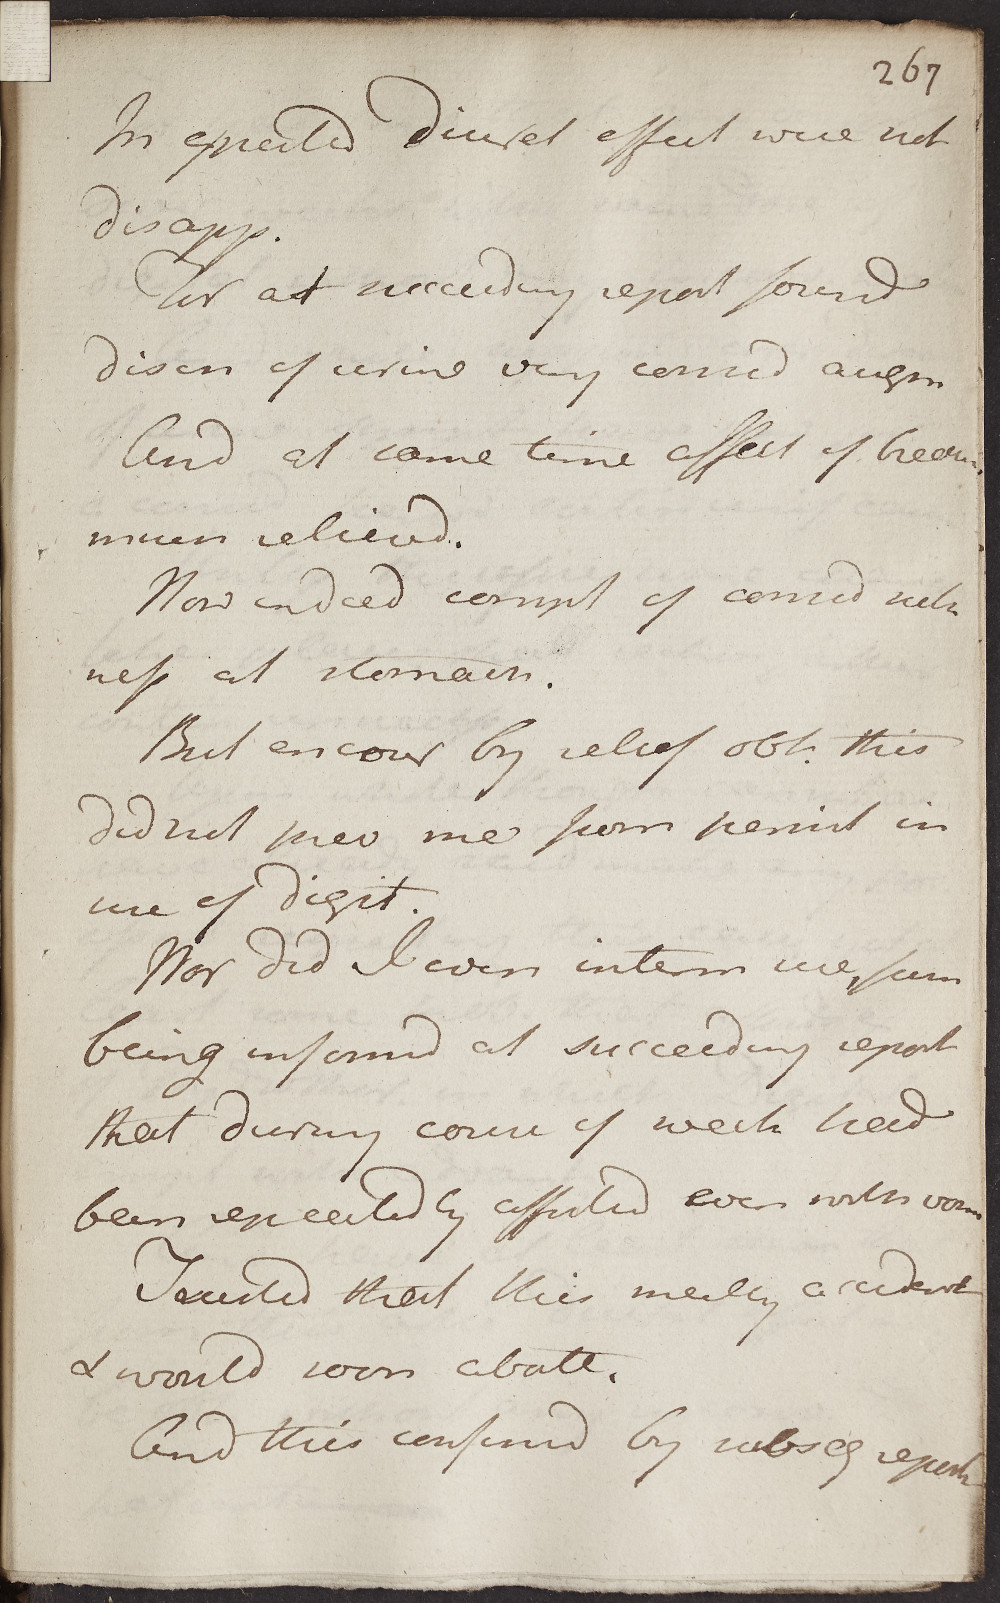 267
In expected Diuret effect were not
disapp.
For at succeeding report found
discn of urine very consid augm
And at same time affect of breath.
much relieved.
Now indeed compl of consid sick
ness at stomach.
But encour by relief obt. this
did not prev me from persist in
use of digit.
Nor did I even interm use, from
being informd at succeeding report
that during course of week had
been repeatedly affected even with vom
Trusted that this merely accident
& would soon abate.
And this confirmd by subseq reports